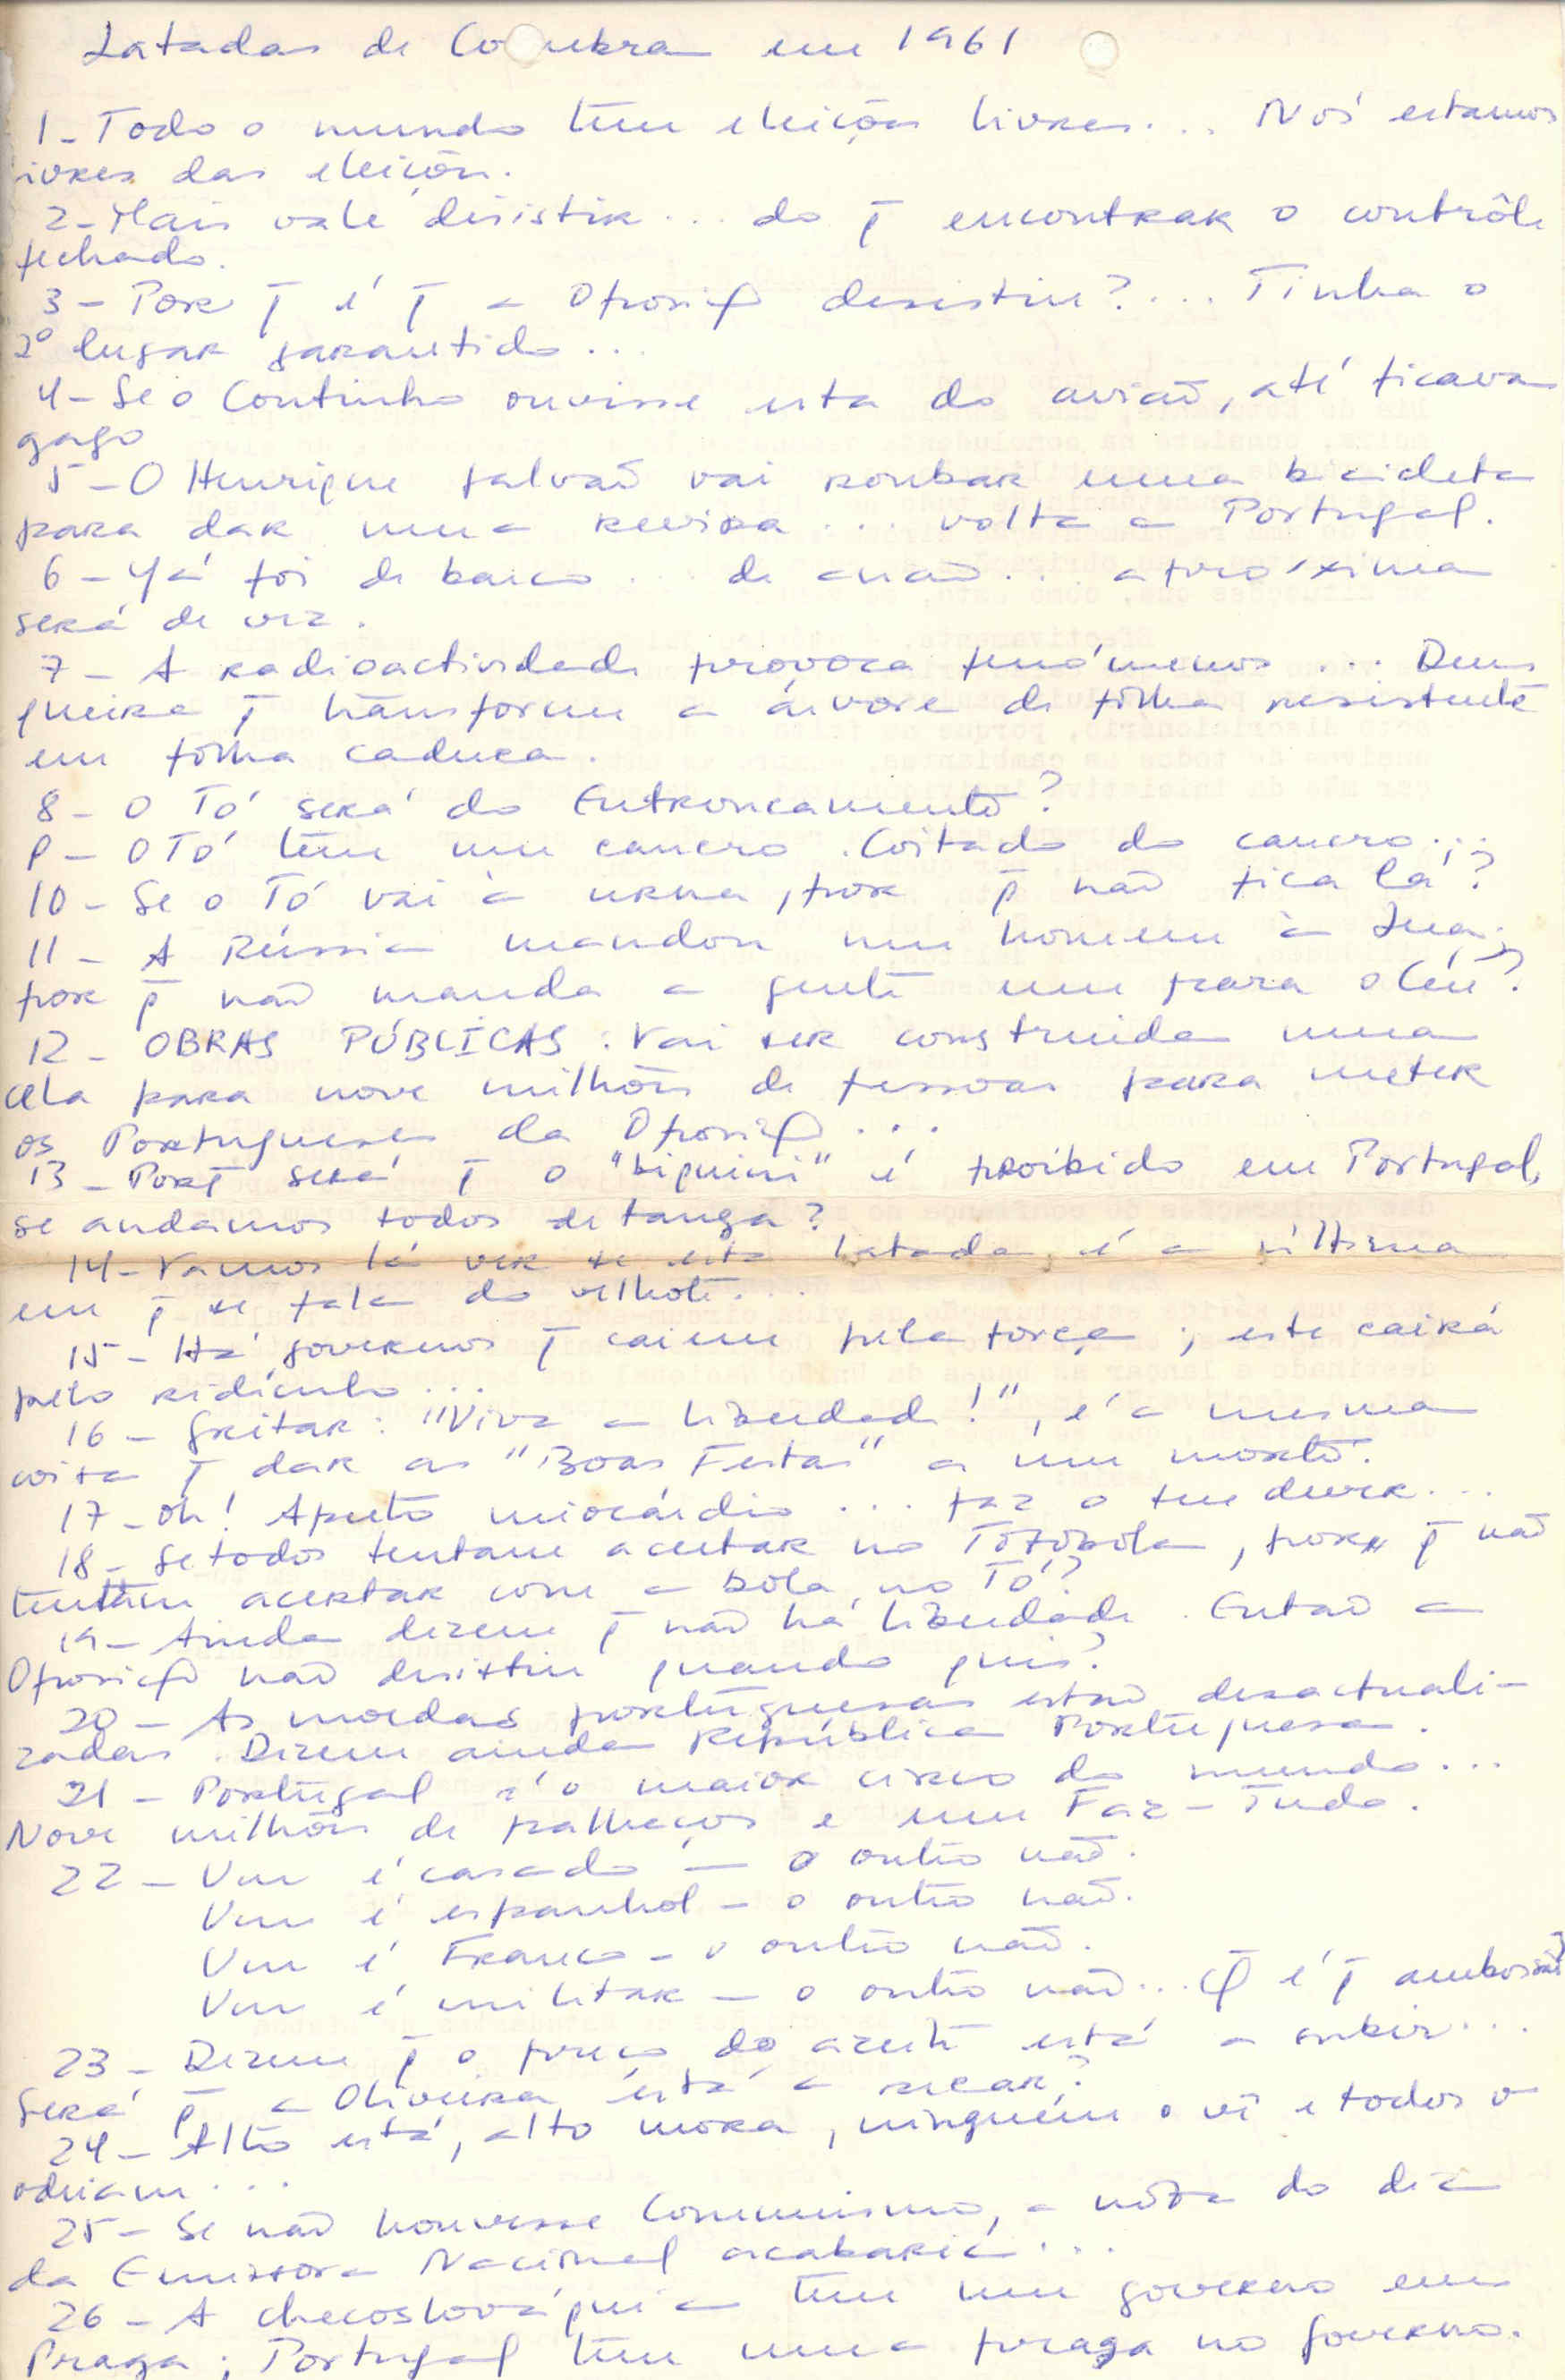 Latadas de Coimbra em 1961
1- Todo o mundo tem eleições livres... Nós estamos
livres das eleições.
2- Mais vale desistir... do q̄ encontrar o contrôle
fechado.
3- Por q̄ é q̄ a Oposiç̃ desistiu?... Tinha o
2º lugar garantido...
4- Se o Coutinho ouvisse esta do avião, até ficava
gago
5- O Henrique Galvão vai roubar uma bicicleta
para dar uma nova volta a Portugal.
6- Já foi de barco... de avião... a próxima
será de vez.
7- A radioactividade provoca fenómenos... Deus
queira q̄ transforme a árvore de fôlha resistente
em fôlha caduca.
8- O Tó será do Entroncamento?
9- O Tó tem um cancro. Coitado do cancro...
10- Se o Tó vai à urna, por q̄ não fica lá?
11- A Rússia mandou um homem à Lua;
por q̄ não manda a gente um para o Céu?
12- OBRAS PÚBLICAS: Vai ser construida uma
cela para nove milhões de pessoas para meter
os Portugueses da Oposiç̃...
13- Porq̄ será q̄ o "biquini" é proibido em Portugal,
se andamos todos de tanga?
14- Vamos lá ver se esta latada é a última
em q̄ se fala do velhote...
15- Há governos q̄ caiem pela força; este cairá
pelo ridículo...
16- Gritar: "Viva a liberdade!", é a mesma
coisa q̄ dar as "Boas Festas" a um morto.
17- Oh! Aperto miocárdio... faz o teu dever...
18- Se todos tentam acertar no Totobola, por q̄ não
tentam acertar com a bola no Tó?
19- Ainda dizem q̄ não há liberdade. Então a
Oposiç̃ não desistiu quando quis?
20- As moedas portuguesas estão desactuali-
zadas. Dizem ainda República Portuguesa.
21- Portugal é o maior circo do mundo...
Nove milhões de palhaços e um Faz-Tudo.
22- Um é casado - o outro não.
Um é espanhol - o outro não.
Um é Franco - o outro não.
Um é militar - o outro não... Q̄ é q̄ ambos são?
23- Dizem q̄ o preço do azeite está a subir...
Será q̄ a Oliveira está a secar?
24- Alto está, alto mora, ninguém o vê e todos o
odeiam...
25- Se não houvesse Comunismo, a nota do dia
da Emissora Nacional acabaria...
26- A checoslováquia tem um governo em
Praga; Portugal tem uma praga no governo.